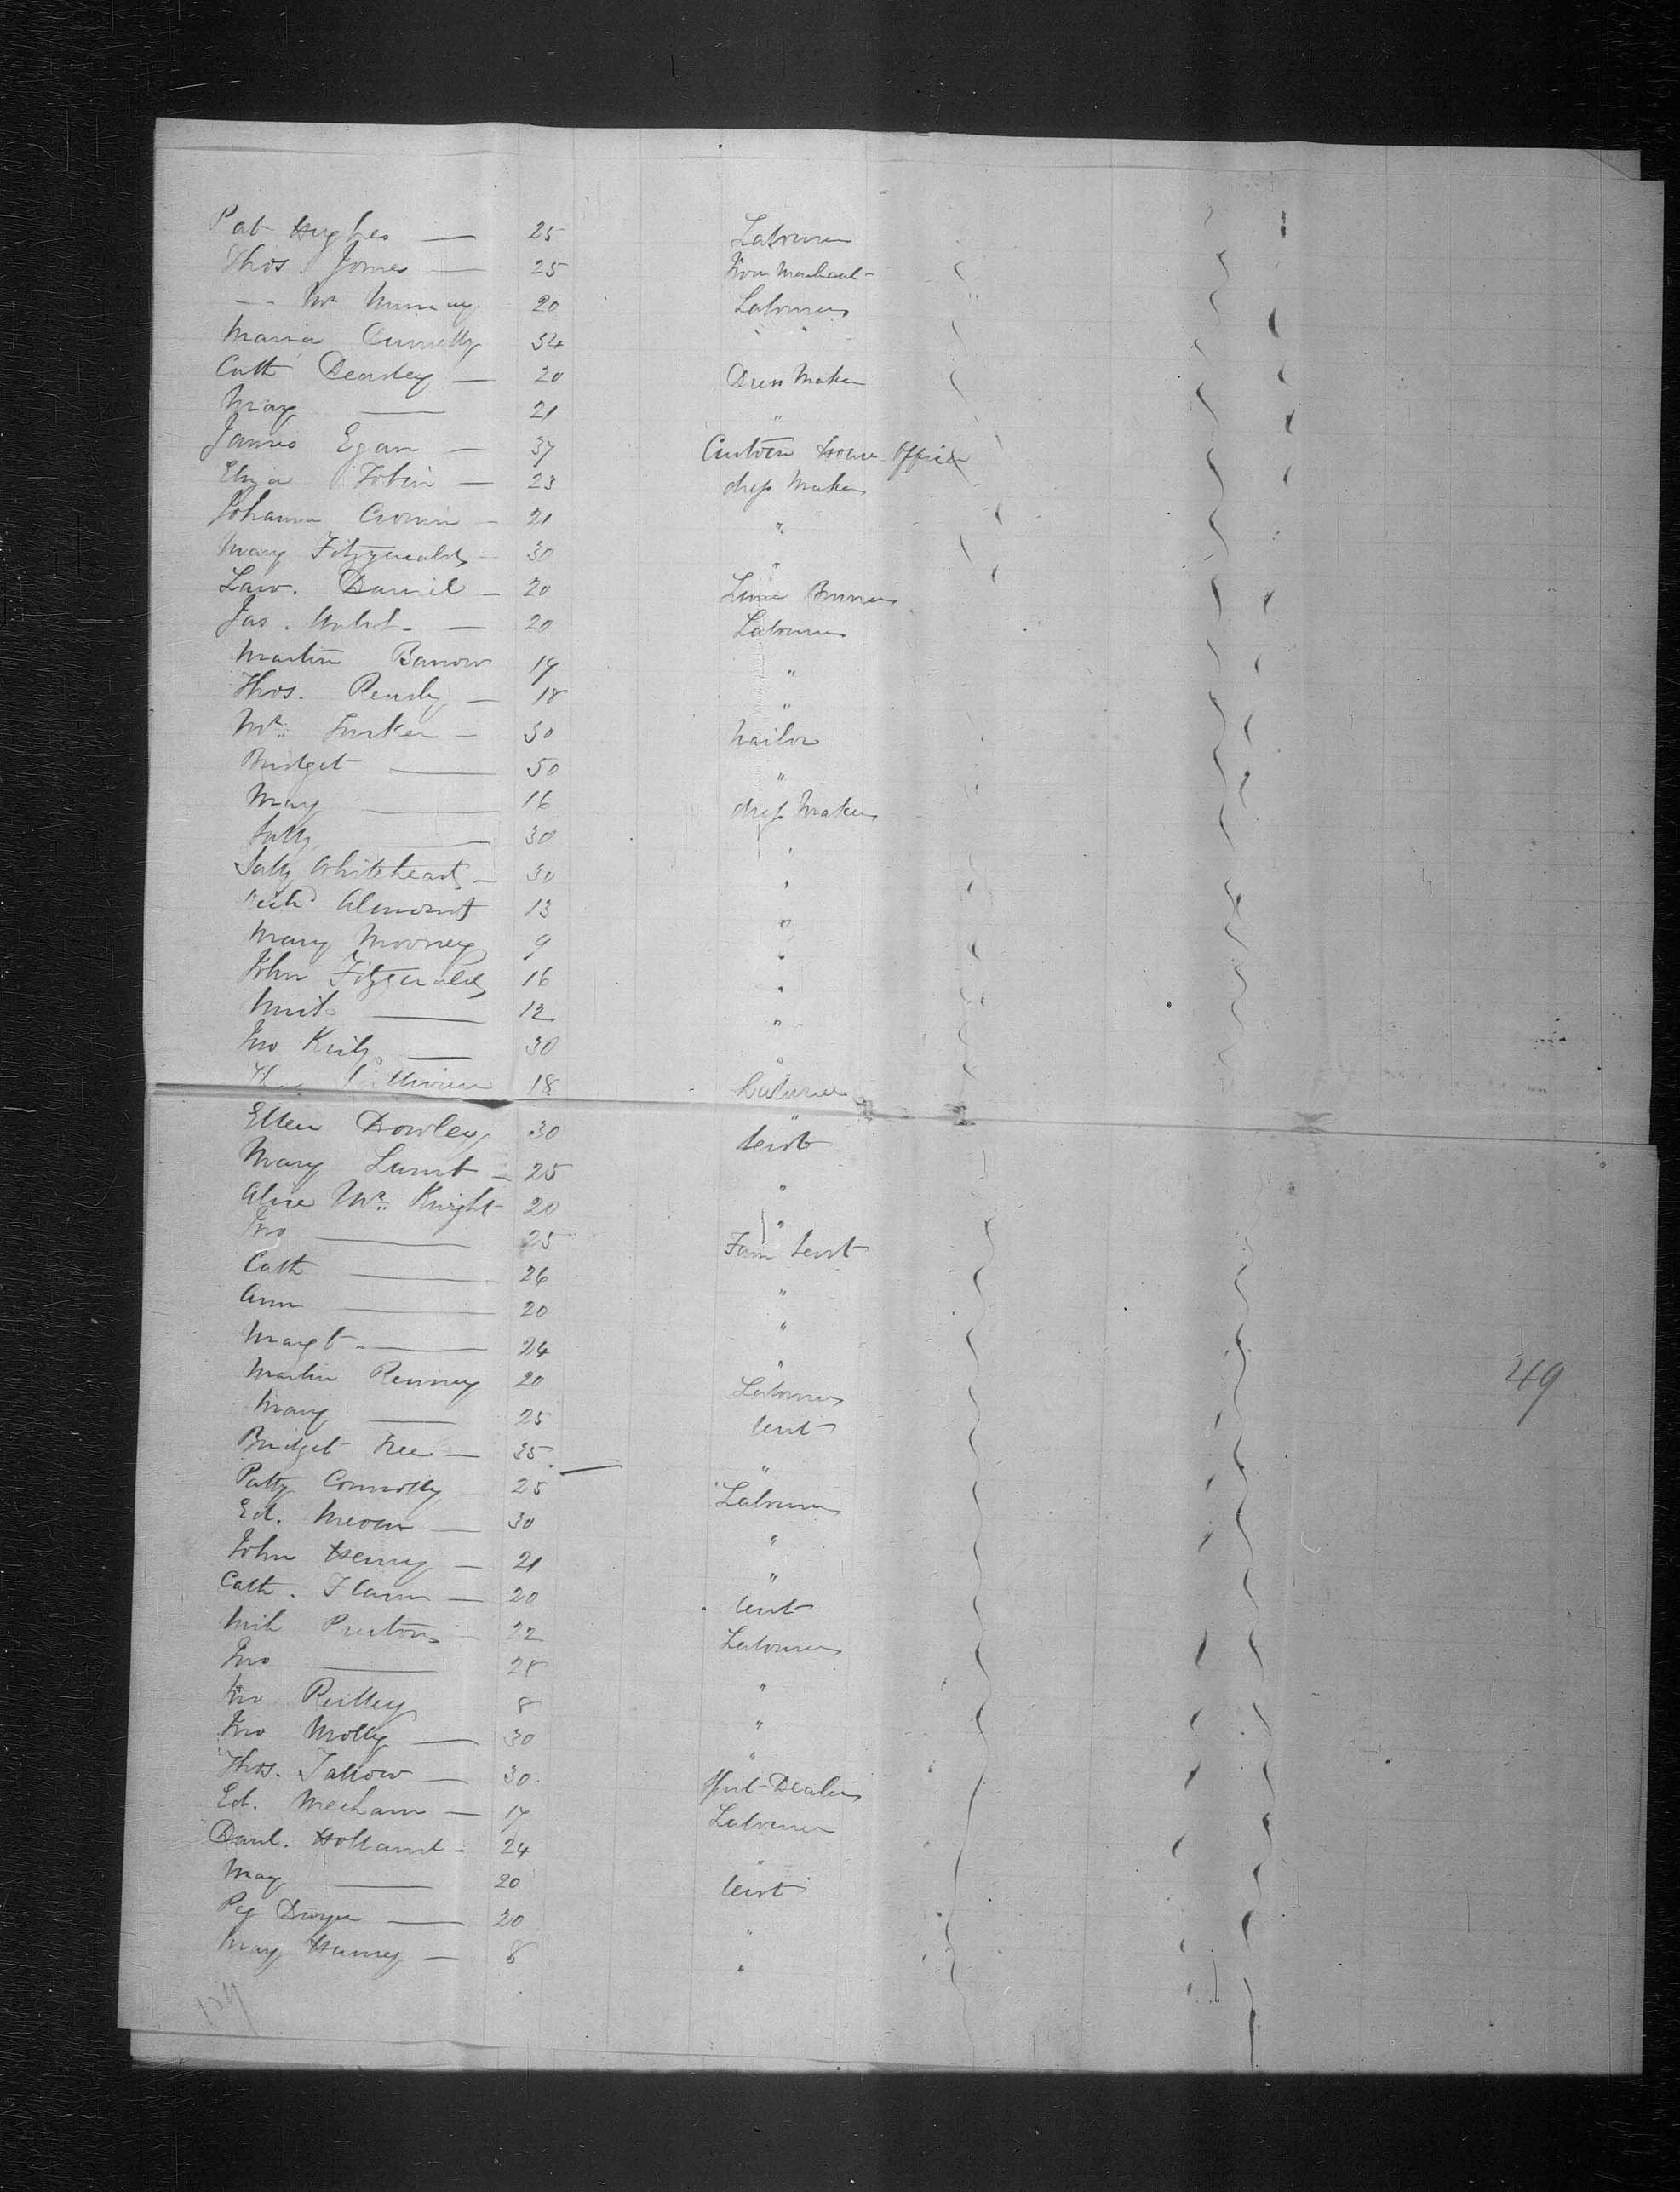 Pat Hughes — 25 Labourer
Thos. Jones — 25 Iron Merchant
-- Wm Murray 20 Labourer
Maria Cunnelly 34 " "
Cath Dearley — 20 Dress Maker
Mary — 21 "
James Egan — 37 Custom House Officer
Eliza Tobin — 23 dress Maker
Johanna Cronin — 21 "
Mary Fitzgerald — 30 "
Law. Daniel — 20 Lime Burner
Jas. Walsh — 20 Labourer
Martin Barrow 17 "
Thos. — 18 "
30 Nailor
Bridget — 50 "
Mary — 16 dress Maker
Sally — 30 "
Sally Whitehead — 30 "
13 "
Mary Mooney 9 "
John Fitzgerald 16 "
— 12 "
Jno — 30 "
18 Labourer
Ellen Dowley 30 "
servt
Mary Lamb — 25 "
Alice Mc Knight 20 "
Jno — 25 Farm servt
Cath — 26 "
Ann — 20 "
Margt. — 24 "
Martin Renney 20 Labourer
Mary — 25 servt
Bridget — 35 — "
Patty Connolly 25 Labourer
Ed. — 30 "
John Henry — 21 "
Cath. Flann — 20 servt
Mich Preston — 22 Labourer
Jno — 28 "
Jno Reilley 8 "
Jno Molly — 30 "
Thos. Tallow — 30 Spirit Dealer
Ed. Mecham — 17 Labourer
Danl. Holland — 24 "
Mary — 20 servt
Peg Dwyer — 20 "
Mary — 8 "
49